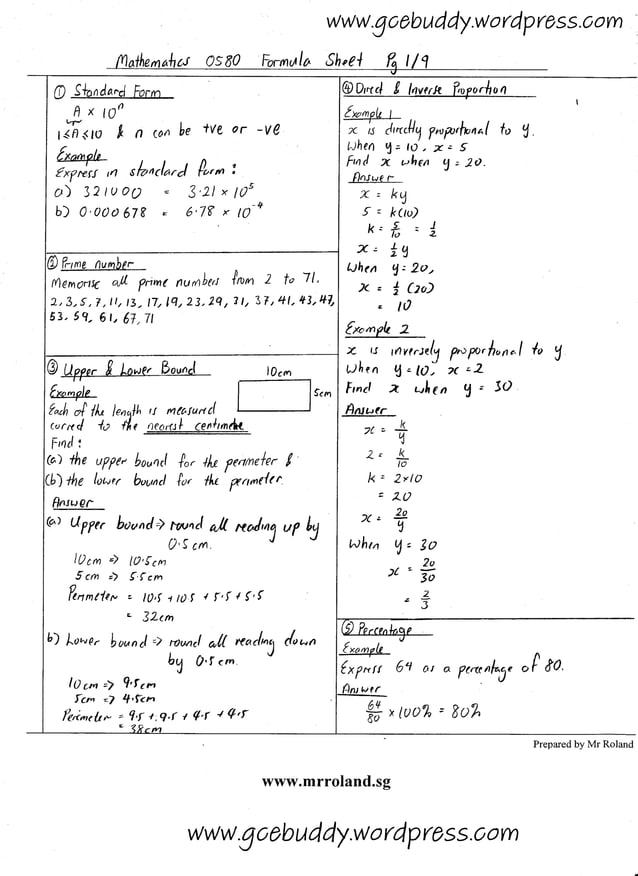 www.gcebuddy.wordpress.com
Mathematics 0580 Formula Sheet Pg 1/9
① Standard Form
A × 10ⁿ
1 ≤ A ≤ 10 & n can be +ve or -ve
Example
Express in standard form :
a) 321000 = 3.21 × 10⁵
b) 0.000678 = 6.78 × 10⁻⁴
② Prime number
Memorise all prime numbers from 2 to 71.
2, 3, 5, 7, 11, 13, 17, 19, 23, 29, 31, 37, 41, 43, 47,
53, 59, 61, 67, 71
③ Upper & Lower Bound
10cm
5cm
Example
Each of the length is measured
to the nearest centimetre
Find :
(a) the upper bound for the perimeter &
(b) the lower bound for the perimeter.
Answer
(a) Upper bound ⇒ round all reading up by
0.5cm.
10cm ⇒ 10.5cm
5cm ⇒ 5.5cm
Perimeter = 10.5 + 10.5 + 5.5 + 5.5
= 32cm
b) Lower bound ⇒ round all reading down
by 0.5cm.
10cm ⇒ 9.5cm
5cm ⇒ 4.5cm
Perimeter = 9.5 + 9.5 + 4.5 + 4.5
= 38cm
④ Direct & Inverse Proportion
Example 1
x is directly proportional to y.
When y = 10, x = 5
Find x when y = 20.
Answer
x = ky
5 = k(10)
k = 5/10 = 1/2
x = 1/2 y
When y = 20,
x = 1/2 (20)
= 10
Example 2
x is inversely proportional to y
When y = 10, x = 2
Find x when y = 30
Answer
x = k/y
2 = k/10
k = 2×10
= 20
x = 20/y
When y = 30
x = 20/30
= 2/3
⑤ Percentage
Example
Express 64 as a percentage of 80.
Answer
64/80 × 100% = 80%
Prepared by Mr Roland
www.mrroland.sg
www.gcebuddy.wordpress.com